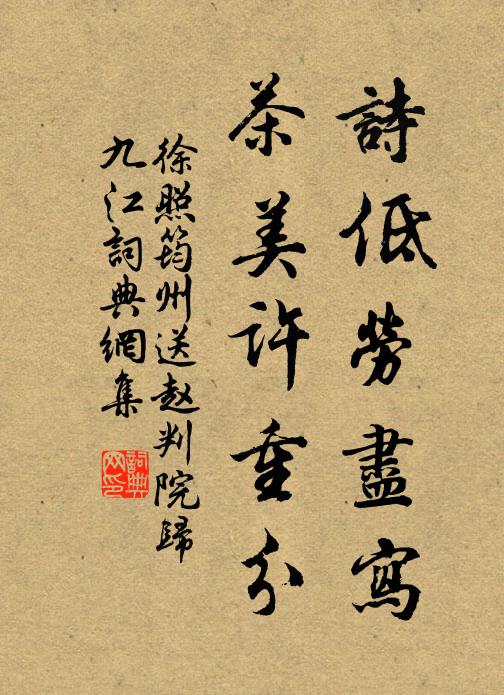 詩低勞盡寫
茶美許重分
徐照筠州送赵判院歸
九江詞典網集
詞典
网印